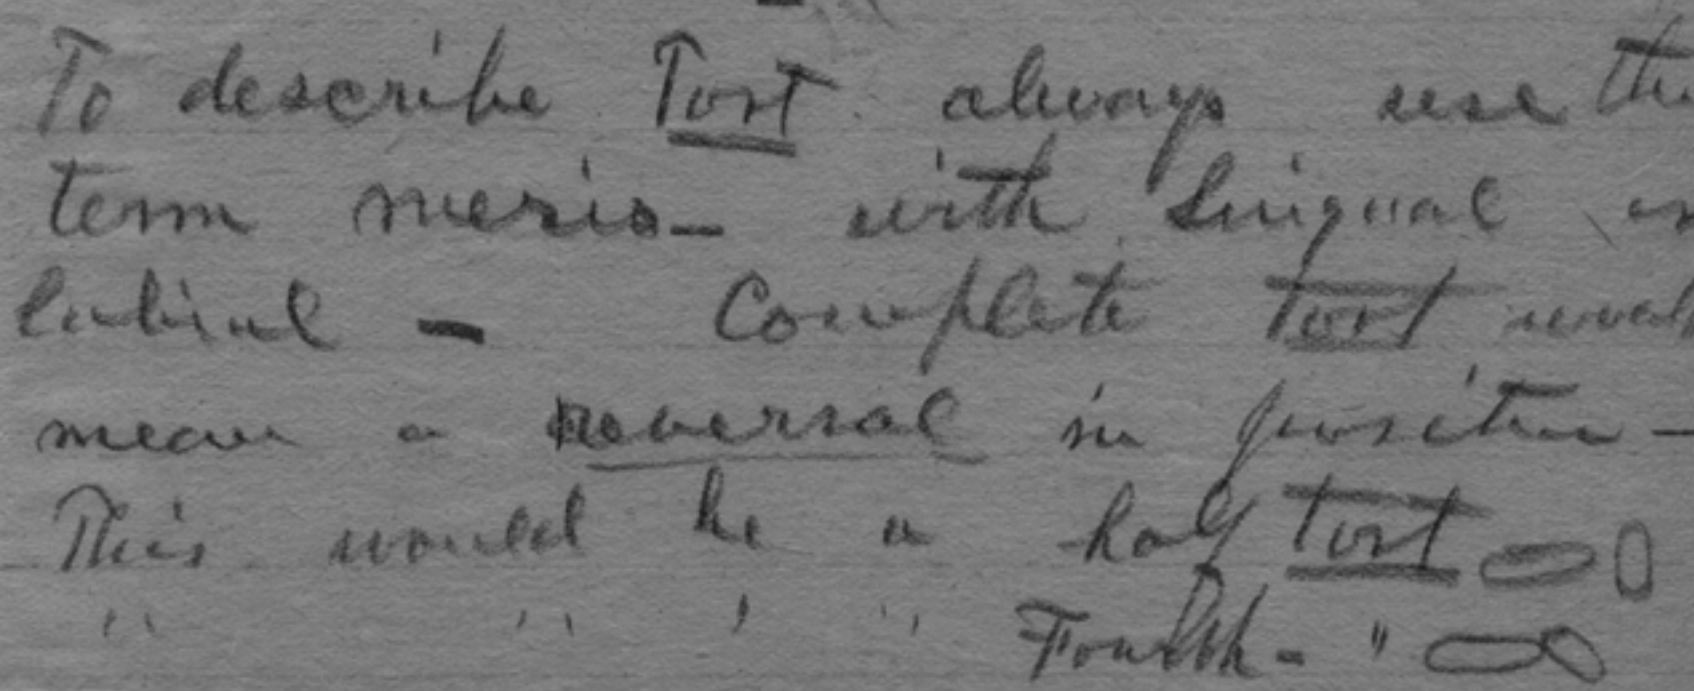 To describe Tort always use the
term mesio- with lingual or
labial - Complete tort would
mean a reversal in position -
This would be a half tort
" " ' " Fourth - "